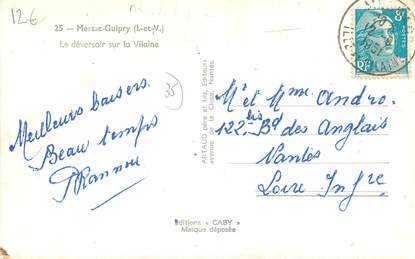 12€
25 — Messac-Guipry (I.-et-V.)
Le déversoir sur la Vilaine
35
Meilleurs baisers.
Beau temps
ARTAUD père et fils, Editeurs
avenue de la Close, Nantes
8F
POSTES
Mr et Mme Andro.
122 bis Bd des Anglais
Nantes
Loire Infre
Editions "GABY"
Marque déposée